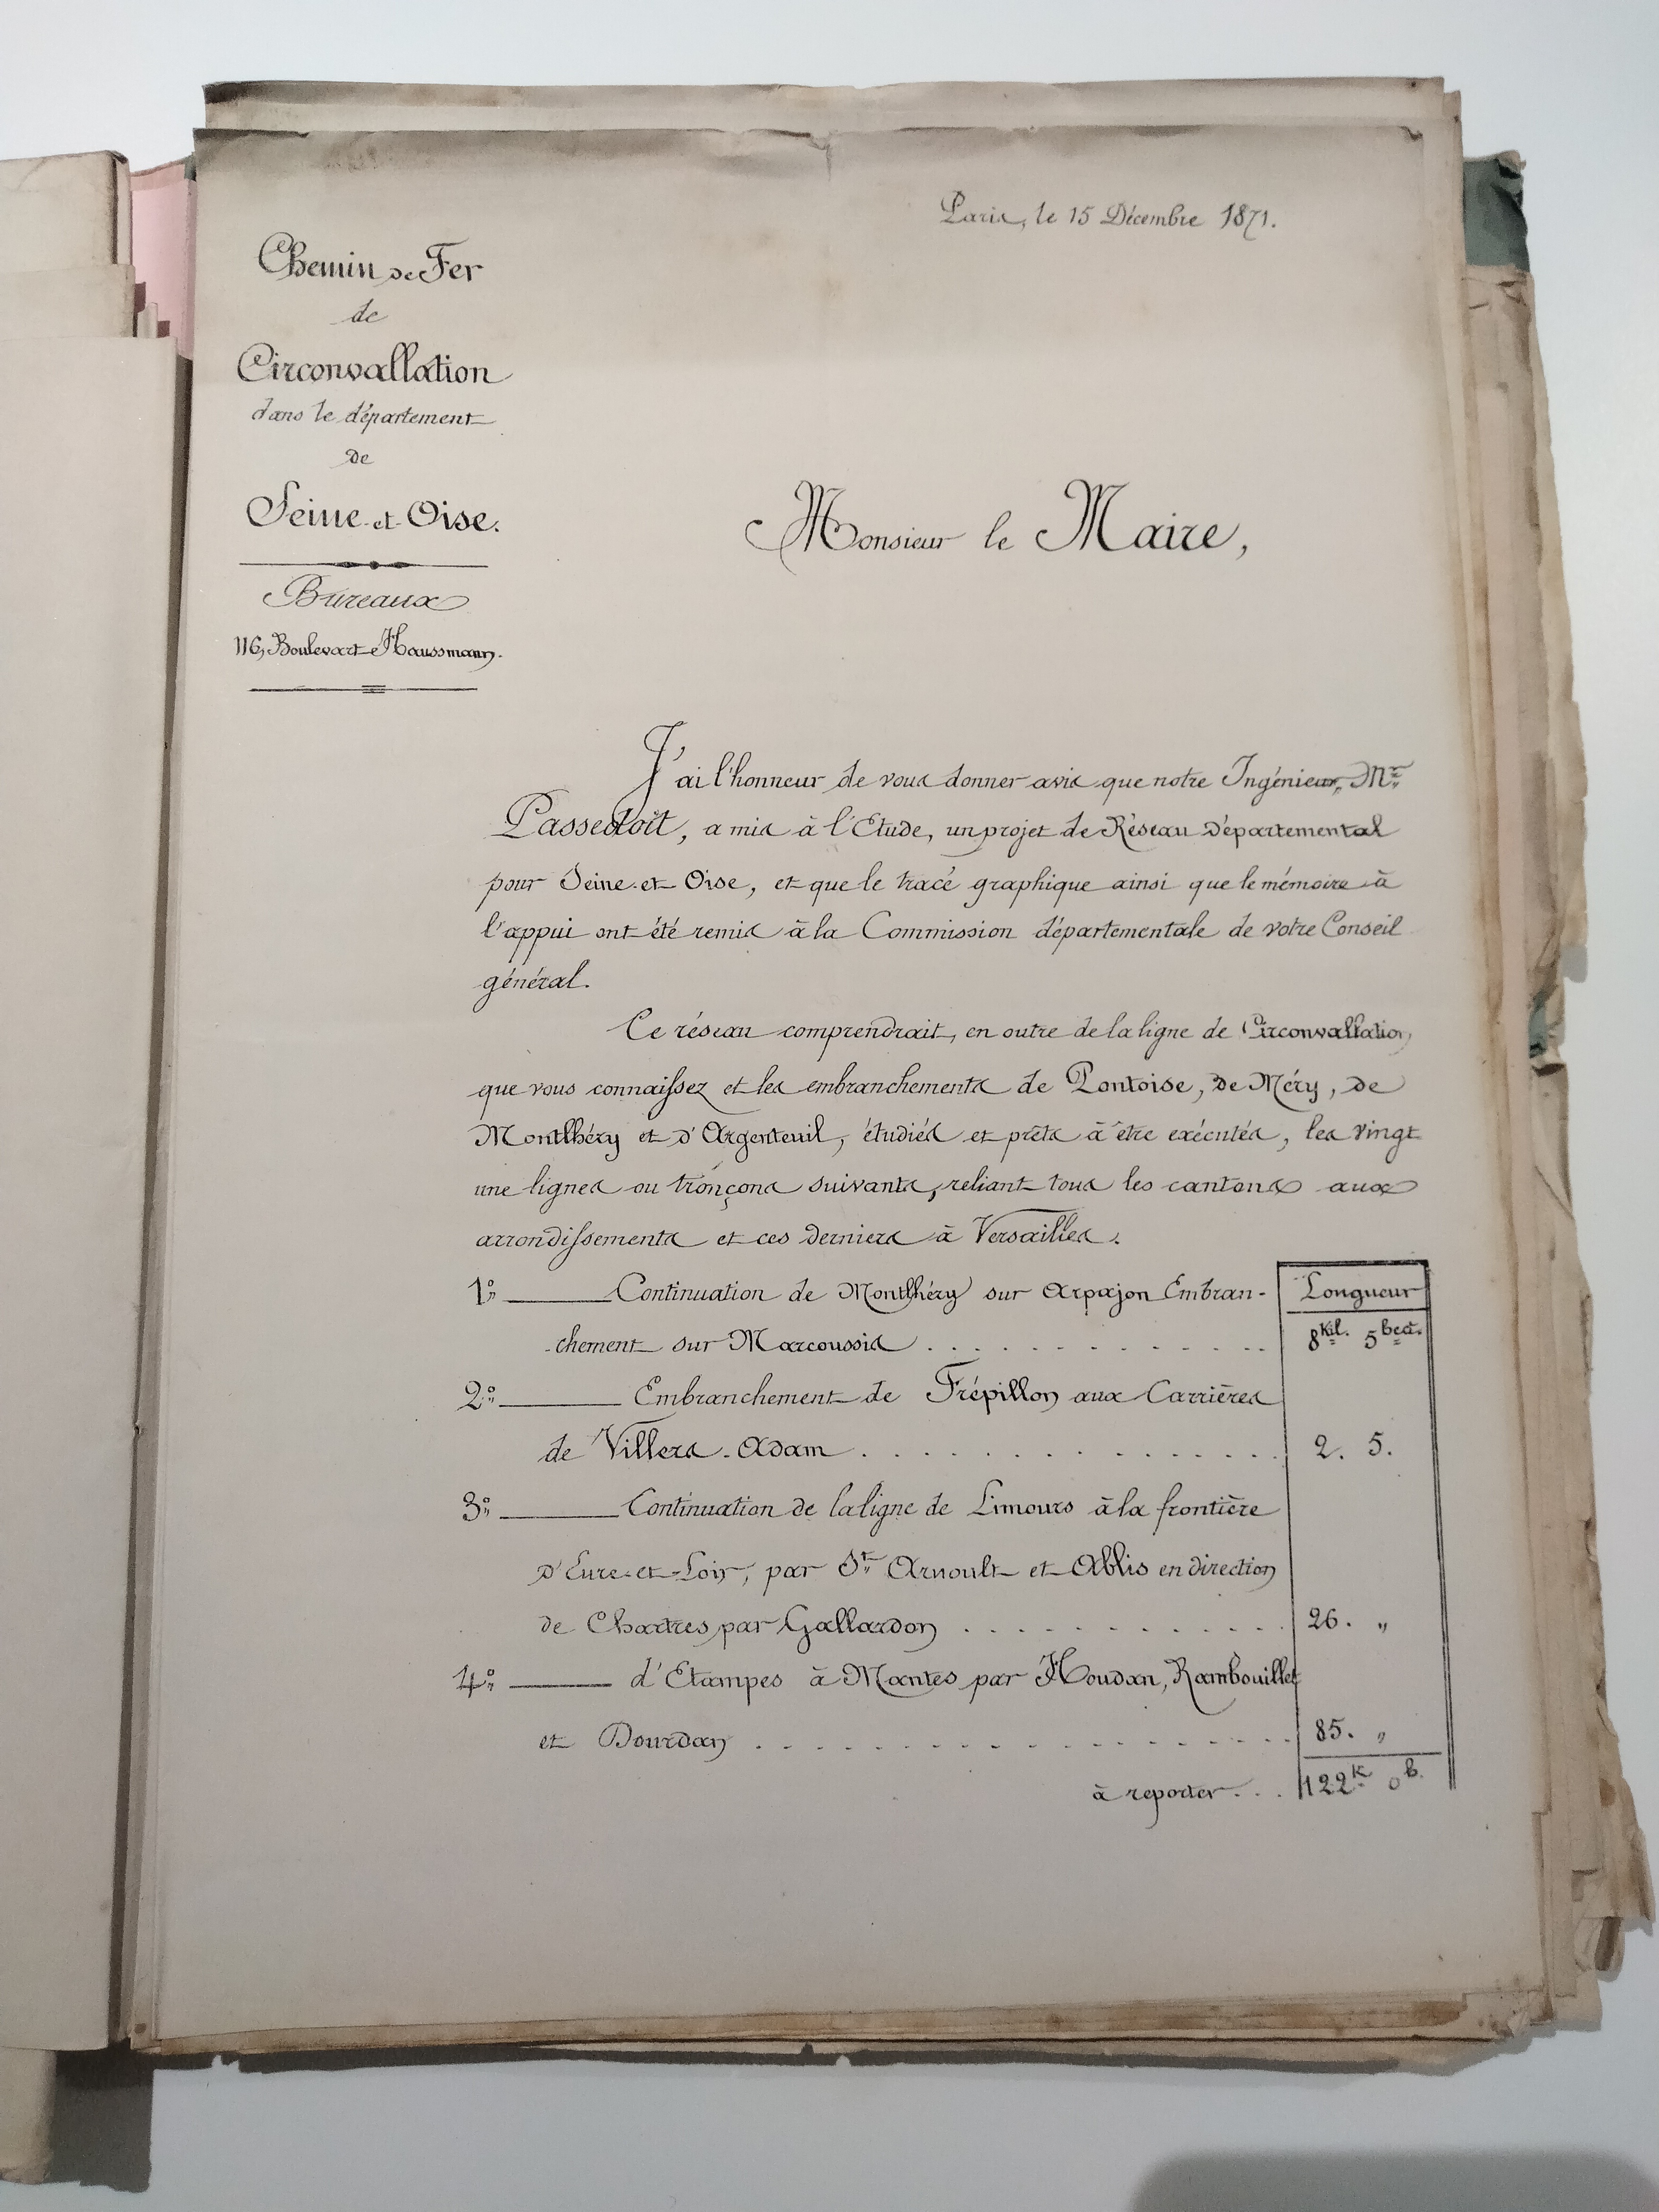 Paris, le 15 Décembre 1871.
Chemin de Fer
de
Circonvallation
dans le département
de
Seine et Oise.
Bureaux
116, Boulevart Haussmann.
Monsieur le Maire,
J'ai l'honneur de vous donner avis que notre Ingénieur, Mr
Passedoit, a mis à l'Etude, un projet de Réseau Départemental
pour Seine et Oise, et que le tracé graphique ainsi que le mémoire à
l'appui ont été remis à la Commission départementale de votre Conseil
général.
Ce réseau comprendrait, en outre de la ligne de Circonvallation
que vous connaissez et les embranchements de Pontoise, de Méry, de
Montlhéry et d'Argenteuil, étudiés et prêts à être exécutés, les vingt
une lignes ou tronçons suivants, reliant tous les cantons aux
arrondissements et ces derniers à Versailles.
1o Continuation de Montlhéry sur Arpajon Embran- Longueur
chement sur Marcoussis . . . . . . . . . . . . . 8 Kil. 5 hect.
2o Embranchement de Frépillon aux Carrières
de Villers-Adam . . . . . . . . . . . . . . . 2. 5.
3o Continuation de la ligne de Limours à la frontière
d'Eure-et-Loir, par St Arnoult et Ablis en direction
de Chartres par Gallardon . . . . . . . . . . . . 26. "
4o d'Etampes à Mantes par Houdan, Rambouillet
et Dourdan . . . . . . . . . . . . . . . . . . 85. "
à reporter . . . 122k 0h.